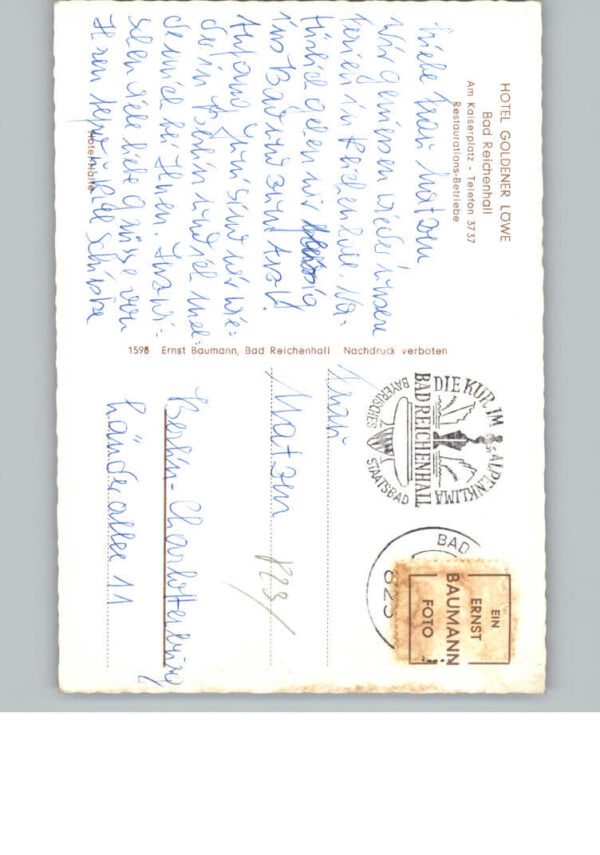 HOTEL GOLDENER LÖWE
Bad Reichenhall
Am Kaiserplatz - Telefon 3737
Restaurations-Betriebe
Liebe Frau Matzen
Wir geniessen wieder unsere
Ferien in Reichenhall. Na-
türlich gehen wir
ins Bad und zum
Anfang Juni sind wir wie-
der in Berlin und ich mel-
de mich bei Ihnen. Inzwi-
schen viele liebe Grüsse von
Ihren
1598 Ernst Baumann, Bad Reichenhall Nachdruck verboten
DIE KUR IM ALPENKLIMA
BAD REICHENHALL
BAYERISCHES STAATSBAD
BAD
823
EIN
ERNST
BAUMANN
FOTO
Frau
Matzen
Berlin-Charlottenburg
Länderallee 11